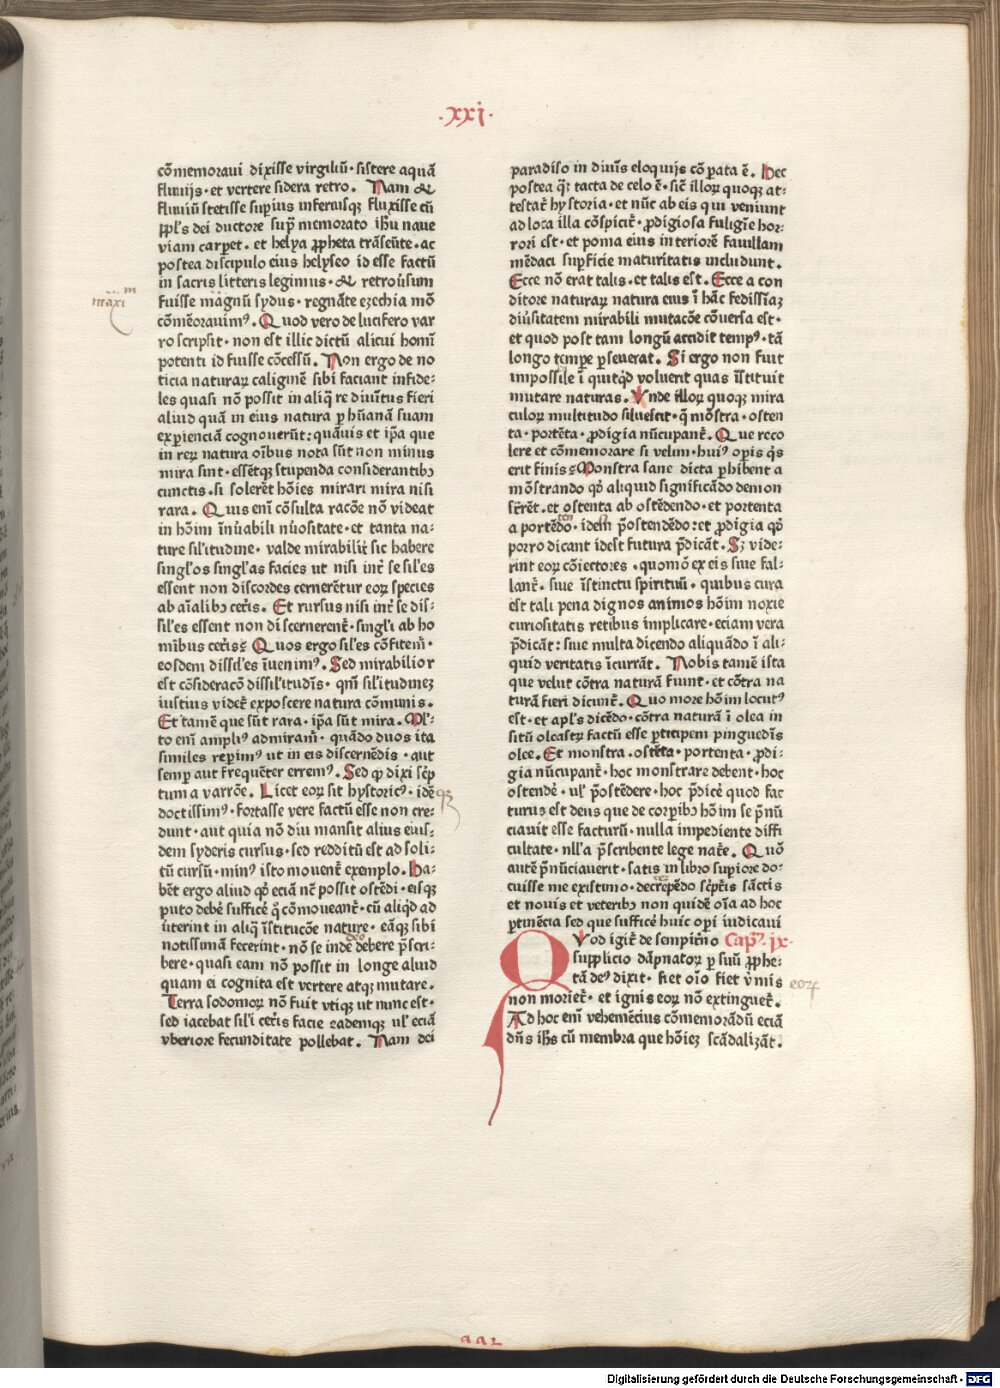 ·xxj·
cõmemoraui dixisse virgiliũ· sistere aquã
fluuijs· et vertere sidera retro. Nam &
fluuiũ stetisse supius inferiusqꝫ fluxisse cũ
ppl's dei ductore sup̃ memorato ihũ naue
viam carpet. et helya ꝓpheta trãseũte. ac
postea discipulo eius helyseo id esse factũ
in sacris litteris legimus. & retrou̇sum
maxim
fuisse magnũ sydus· regnãte ezechia mõ
cõmẽorauimꝰ. Quod vero de lucifero var
ro scripsit· non est illic dictũ alicui homĩ
potenti id fuisse cõcessũ. Non ergo de no
ticia naturaꝝ caliginẽ sibi faciant infide⸗
les quasi nõ possit in aliq̃ re diuĩtus fieri
aliud quã in eius natura ꝑ hũanã suam
exꝑienciã cognouerũt: quãuis et ip̃a que
in reꝝ natura oĩbus nota sũt non minus
mira sint· essẽtqꝫ stupenda considerantibꝫ
cunctis· si solerẽt hõies mirari mira nisi
rara. Quis enĩ cõsulta racõe nõ videat
in hõim ĩnũabili nũositate· et tanta na⸗
ture sil'itudine· valde mirabilit̃ sic habere
singl'os singl'as facies ut nisi int̃ se sil'es
essent non discordes cernerẽtur eoꝝ species
ab aĩalibꝫ cet̃is. Et rursus nisi int̃ se dis⸗
sil'es essent non discernerent̃· singl'i ab ho
mĩbus cet̃is: Quos ergo sil'es cõfitem̃·
eosdem dissil'es ĩuenimꝰ. Sed mirabilior
est cõsideracõ dissil'itudĩs· qm̃ sil'itudineꝫ
iustius videt̃ exposcere natura cõmunis.
Et tamẽ que sũt rara· ip̃a sũt mira. Ml'⸗
to enĩ ampliꝰ admiram̃· quãdo duos ita
similes reꝑimꝰ ut in eis discernẽdis· aut
semꝑ aut frequẽter erremꝰ. Sed ꝙ dixi sc̃p
tum a varrõe. Licet eoꝝ sit hystoricꝰ· idẽ qꝫ
doctissimꝰ· fortasse vere factũ esse non cre⸗
dunt· aut quia nõ diu mansit alius eius⸗
dem syderis cursus· sed redditũ est ad soli⸗
tũ cursũ· minꝰ isto mouent̃ exemplo. Ha⸗
bẽt ergo aliud qđ eciã nẽ possit ostẽdi· eisqꝫ
puto debe᷑ suffice᷑ q̇ cõmoueant̃· cũ aliqd ad
ũterint in aliq̃ ĩstitucõe nature· eãqꝫ sibi
notissimã fecerint· nõ se inde deo debere p̃scri⸗
bere· quasi eam nõ possit in longe aliud
quam ei cognita est vertere atqꝫ mutare.
Terra sodomoꝝ nõ fuit vtiqꝫ ut nunc est·
sed iacebat sil'i cet̃is facie eademqꝫ ul' eciã
vberiore fecunditate pollebat. Nam dei
paradiso in diuĩs eloquijs cõparata ẽ. Hec
postea q̃ꝫ tacta de celo ẽ· sic̃ illoꝝ quoqꝫ at⸗
testat̃ hystoria· et nũc ab eis qui veniunt
ad loca illa cõspicit̃· ꝓdigiosa fuligĩe hor⸗
rori est· et poma eius interiorẽ fauillam
mẽdaci suꝑficie maturitatis includunt.
Ecce nõ erat talis· et talis est. Ecce a con
ditore naturaꝝ natura eius ĩ hãc fedissĩaꝫ
diu̇sitatem mirabili mutacõe cõuersa est·
et quod post tam longũ accidit tempꝰ· tã
longo tempe ꝑseuerat. Si ergo non fuit
impossile ĩ quitqd voluerit quas ĩstituit
mutare naturas. Vnde illoꝝ quoqꝫ mira
culoꝝ multitudo siluescit· q̃ mõstra· osten
ta· portẽta· ꝓdigia nũcupant̃. Que reco
lere et cõmemorare si velim· huiꝰ opis q̃s
erit finis: Monstra sane dicta ꝑhibent a
mõstrando qđ aliquid significãdo demon
st̃rẽt. et ostenta ab ostẽdendo· et portenta
a portẽdẽdo· idem p̃ostendẽdo: et ꝓdigia qđ
porro dicant idest futura p̃dicãt. Sꝫ vide⸗
rint eoꝝ cõiectores· quomõ ex eis siue fal⸗
lant̃· siue ĩstinctu spirituũ· quibus cura
est tali pena dignos animos hõim noxie
curiositatis retibus ĩmplicare· eciam vera
p̃dicãt: siue multa dicendo aliquãdo ĩ ali⸗
quid veritatis ĩcurrãt. Nobis tamẽ ista
que velut cõtra naturã fiunt· et cõtra na
turã fieri dicunt̃. Quo more hõim locutꝰ
est· et apl's dicẽdo· cõtra naturã ĩ olea in
sitũ oleastꝝ factũ esse ꝑticipem pinguedĩs
olee. Et monstra· ostẽta· portenta· ꝓdi⸗
gia nũcupant̃· hoc monstrare debent· hoc
ostende᷑· ul' p̃ostẽdere· hoc p̃dice᷑ quod fac
turus est deus que de corꝑibꝫ hõim se p̃nũ
ciauit esse facturũ· nulla impediente diffi
cultate· nll'a p̃scribente lege nat̃e. Quõ
autẽ p̃nũciauerit· satis in libro suꝑiore do⸗
cuisse me existimo· decerpẽdo sc̃pt̃is sãctis
et nouis et veteribꝫ non quidẽ oĩa ad hoc
ꝑtinẽcia sed que suffice᷑ huic oꝑi iudicaui
QVod igit̃ de sempit̃no Cap̃. ix·
supplicio dãpnatoꝝ ꝑ suũ ꝓphe⸗
tã deꝰ dixit· fiet oĩo fiet v̇mis eoꝝ
non moriet̃· et ignis eoꝝ nõ extinguet̃.
Ad hoc enĩ vehemẽcius cõmemorãdũ eciã
dñs ihs cũ membra que hõieꝫ scãdalizãt.
Digitalisierung gefördert durch die Deutsche Forschungsgemeinschaft - DFG